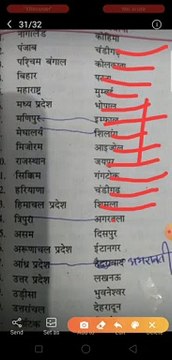 31/32
नागालैंड कोहिमा
पंजाब चंडीगढ़
पश्चिम बंगाल कोलकाता
बिहार पटना
महाराष्ट्र मुम्बई
मध्य प्रदेश भोपाल
मणिपुर इम्फाल
मेघालय शिलांग
मिजोरम आइजोल
राजस्थान जयपुर
सिक्किम गंगटोक
हरियाणा चंडीगढ़
हिमाचल प्रदेश शिमला
त्रिपुरा अगरतला
असम दिसपुर
अरूणाचल प्रदेश ईटानगर
आंध्र प्रदेश हैदराबाद अमरावती
उत्तर प्रदेश लखनऊ
उड़ीसा भुवनेश्वर
उत्तरांचल देहरादून
Set as